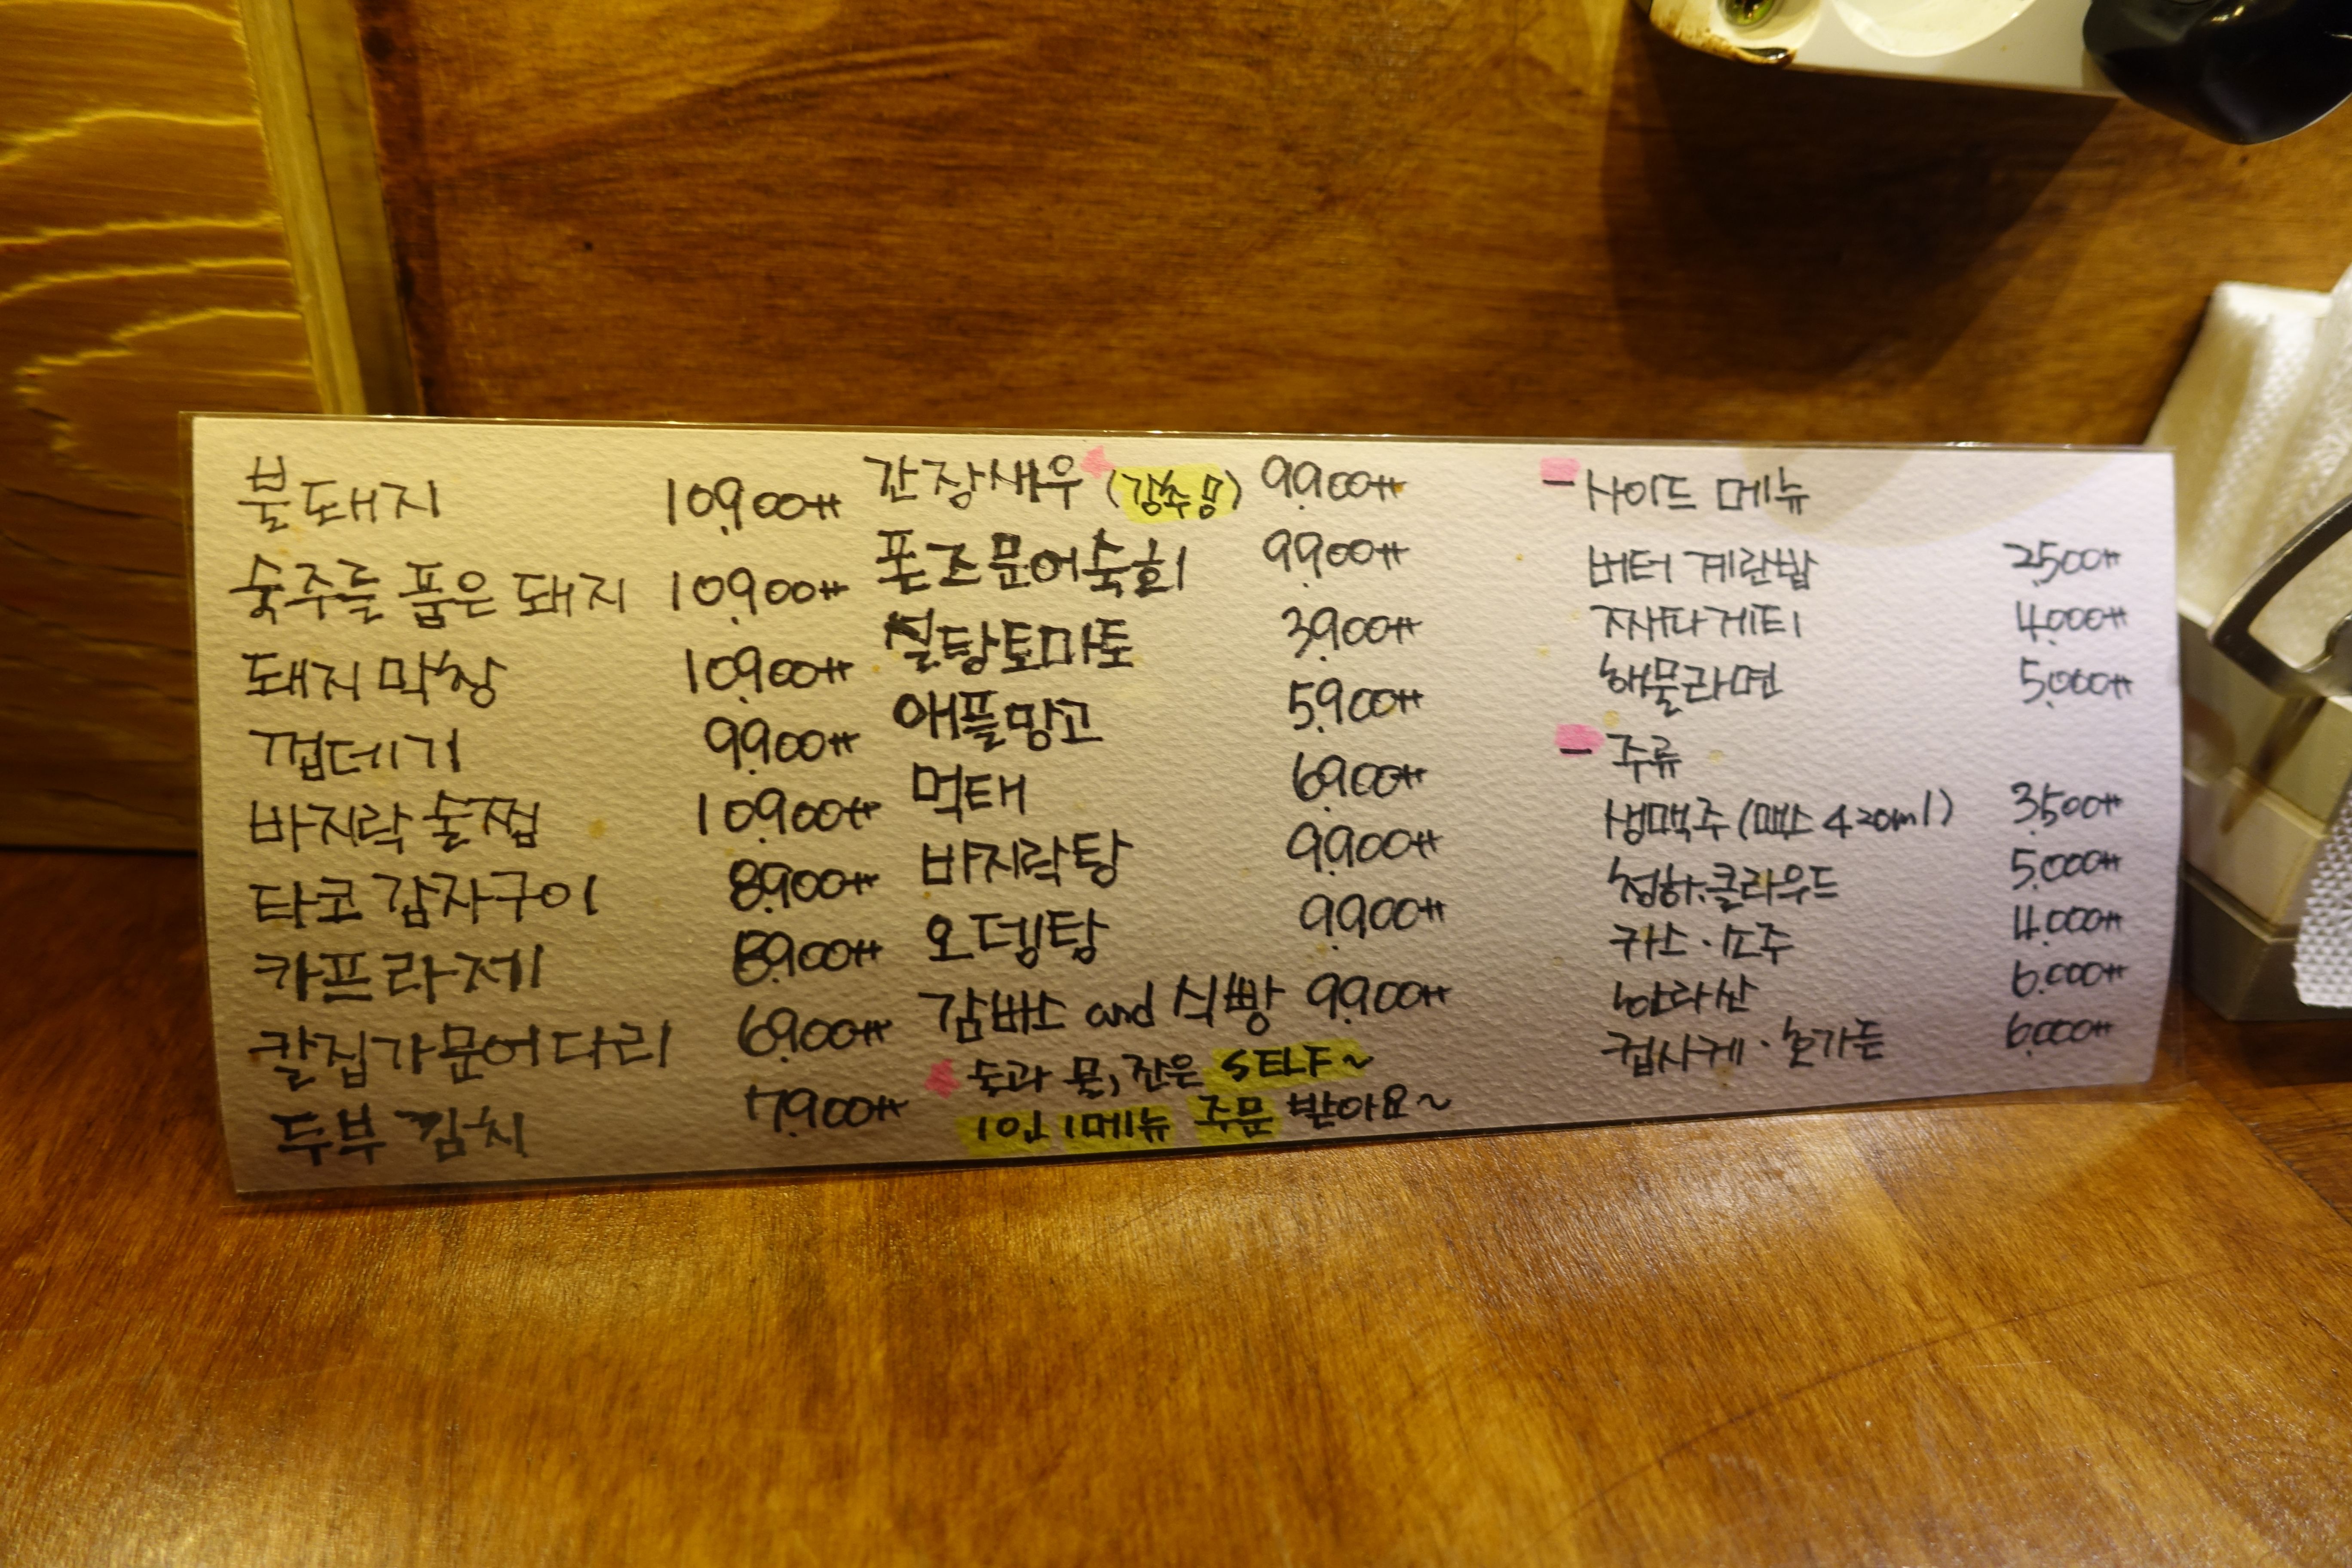 불돼지 10,900ㅆ
숙주를 품은 돼지 10,900ㅆ
돼지 막창 10,900ㅆ
껍데기 9,900ㅆ
바지락 술찜 10,900ㅆ
타코 감자구이 8,900ㅆ
카프라제 8,900ㅆ
칼집가문어다리 6,900ㅆ
두부 김치 7,900ㅆ
간장새우 (강추믕) 9,900ㅆ
폰즈문어숙회 9,900ㅆ
설탕토마토 3,900ㅆ
애플망고 5,900ㅆ
먹태 6,900ㅆ
바지락탕 9,900ㅆ
오뎅탕 9,900ㅆ
감바스 and 식빵 9,900ㅆ
술과 물, 잔은 SELF~
1인 1메뉴 주문 받아요~
- 사이드 메뉴
버터 계란밥 2,500ㅆ
짜파게티 4,000ㅆ
해물라면 5,000ㅆ
- 주류
생맥주 (맥스 420ml) 3,500ㅆ
청하.클라우드 5,000ㅆ
카스·소주 4,000ㅆ
한라산 6,000ㅆ
컵사케·호가든 6,000ㅆ